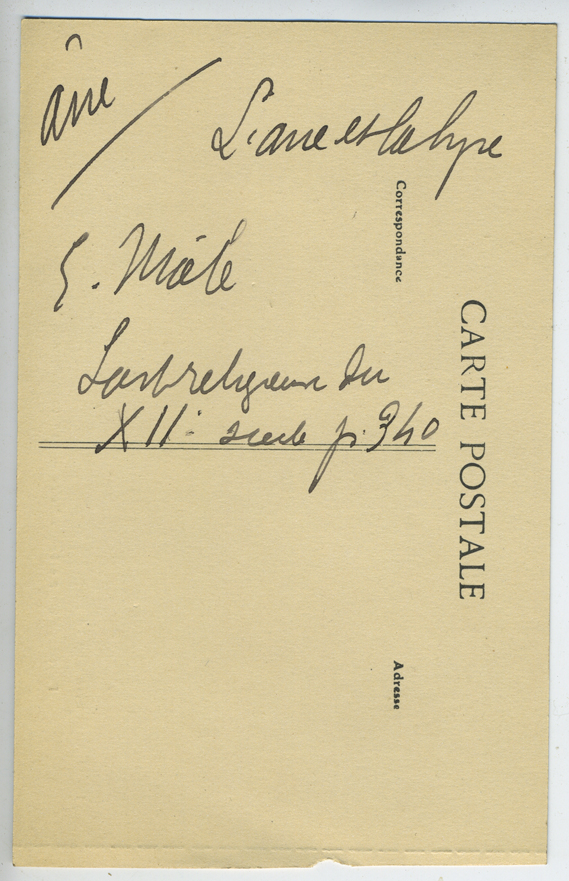 âne
L'ane et la lyre
E. Male
L'art religieux du
XII siecle p. 340
Correspondance
CARTE POSTALE
Adresse